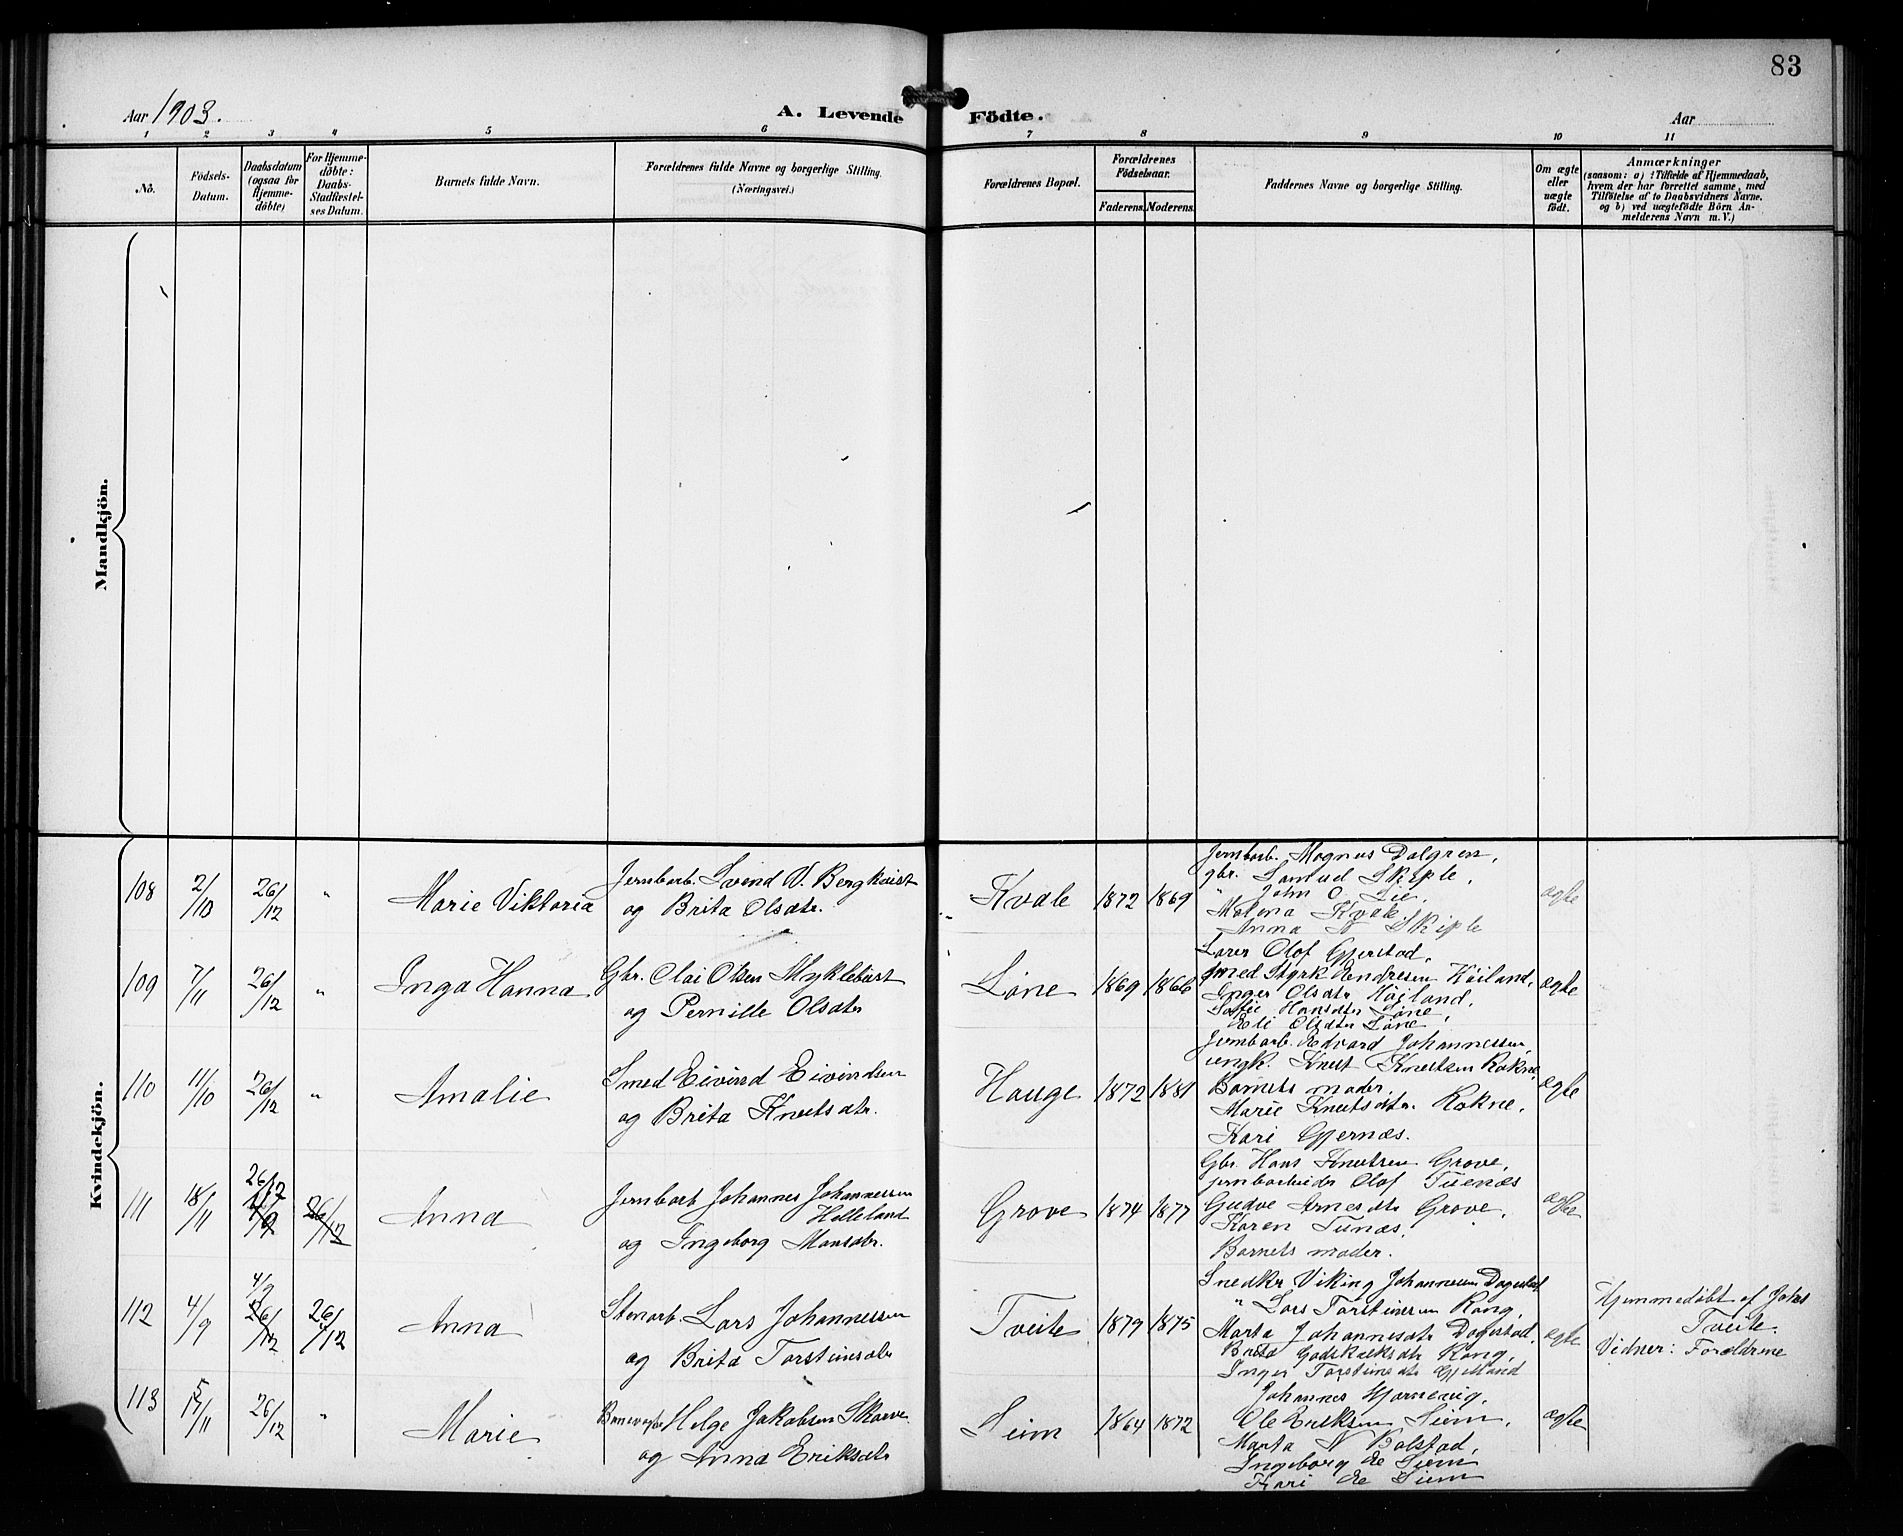 83
Aar 1903.
A. Levende Födte.
Aar
1 2 3 4 5 6 7 8 9 10 11
No.
Födsels-Datum.
Daabsdatum (ogsaa for Hjemme-döbte)
For Hjemme-döbte: Daabs-Stadfæstel-ses Datum.
Barnets fulde Navn.
Forældrenes fulde Navne og borgerlige Stilling.
(Næringsvei.)
Forældrenes Bopæl.
Forældrenes Födselsaar.
Faderens. Moderens.
Faddernes Navne og borgerlige Stilling.
Om ægte eller uægte födt.
Anmærkninger
(saasom: a) i Tilfælde af Hjemmedaab,
hvem der har forrettet samme, med
Tilföielse af to Daabsvidners Navne.
og b) ved uægtefödte Börn An-
melderens Navn m. V.)
Mandkjön.
Kvindekjön.
108 2/10 26/12 " Marie Viktoria
Jernbarb. Svend V. Bergkvist
og Brita Olsdtr.
Kvale 1872 1869
Jernbarb. Magnus Dalgren,
gbr. Samuel Skiple,
" John O. Lie,
Malena Kvale,
Anna N Skiple
ægte
109 7/11 26/12 " Inga Hanna
Gbr. Olai Olsen Myklebust
og Pernille Olsdtr
Löne 1869 1866
Lærer Olof Gjerstad,
Smed Styrk Andresen Höiland,
Inger Olsdtr Höiland,
Sofie Hansdtr Löne,
Eli Olsdtr Löne
ægte
110 11/10 26/12 " Amalie
Smed Eivind Eivindsen
og Brita Knutsdtr.
Hauge 1872 1881
Jernbarb. Edvard Johannessen,
ungk. Knut Knutsen Rokne,
Barnets moder,
Marie Knutsdtr. Rokne,
Kari Gjernæs.
ægte
111 18/11 26/12 26/12 Anna
Jernbarb Johannes Johannessen
Helleland
og Ingeborg Monsdtr.
Grove 1874 1877
Gbr. Hans Knutsen Grove,
jernbarbeider Olof
Gudve Arnesdtr Grove,
Karen
Barnets moder.
ægte
112 4/9 4/9 26/12 26/12 Anna
Stenarb. Lars Johannessen
og Brita Torsteinsdtr
Tveite 1879 1875
Snedkr Viking Johannessen Dagestad
" Lars Torsteinsen Rong,
Marta Johannesdtr Dagestad,
Brita Godskalksdtr Rong,
Inger Torsteinsdtr Gjelland
ægte
Hjemmedöbt af Johs
Tveite.
Vidner: Forældrene
113 5/11 26/12 " Marie
Banevogter Helge Jakobsen Skorve
og Anna Eriksdtr
Seim 1864 1872
Johannes Hjørnevig,
Ole Eriksen Siem,
Marta N Bolstad,
Ingeborg de Siem
Kari de Siem
ægte